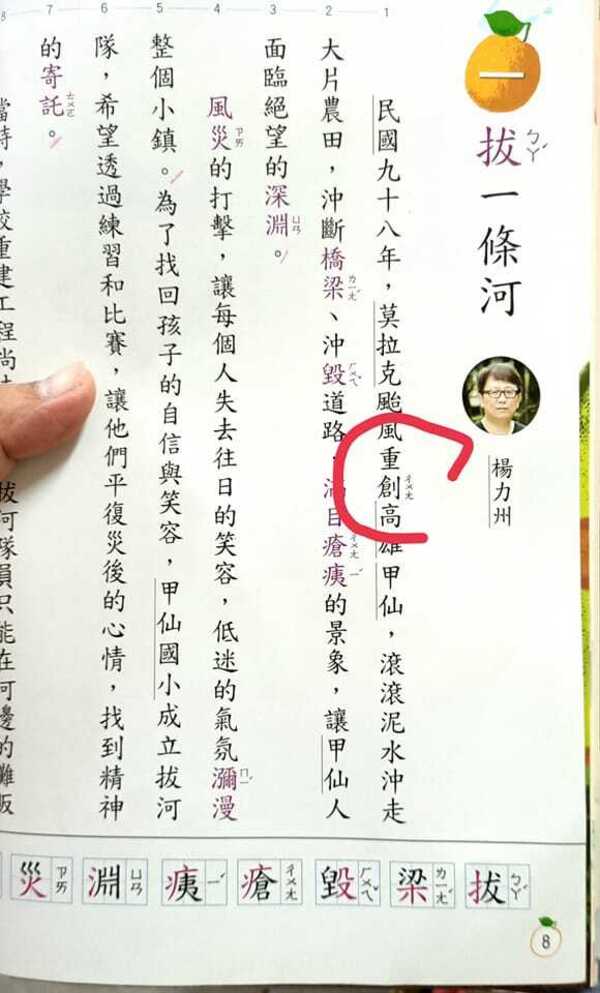 一
拔ㄅㄚˊ一條河
楊力州
1 2 3 4 5 6 7 8
民國九十八年，莫拉克颱風重創ㄔㄨㄤ高雄甲仙，滾滾泥水沖走
大片農田，沖斷橋梁ㄌㄧㄤˊ、沖毀ㄏㄨㄟˇ道路，滿目瘡ㄔㄨㄤ痍ㄧˊ的景象，讓甲仙人
面臨絕望的深淵ㄩㄢ。
風災ㄗㄞ的打擊，讓每個人失去往日的笑容，低迷的氣氛瀰ㄇㄧˊ漫
整個小鎮。為了找回孩子的自信與笑容，甲仙國小成立拔河
隊，希望透過練習和比賽，讓他們平復災後的心情，找到精神
的寄託ㄊㄨㄛ。
當時，學校重建工程尚 拔河隊員只能在河邊的
拔ㄅㄚˊ
梁ㄌㄧㄤˊ
毀ㄏㄨㄟˇ
瘡ㄔㄨㄤ
痍ㄧˊ
淵ㄩㄢ
災ㄗㄞ
8